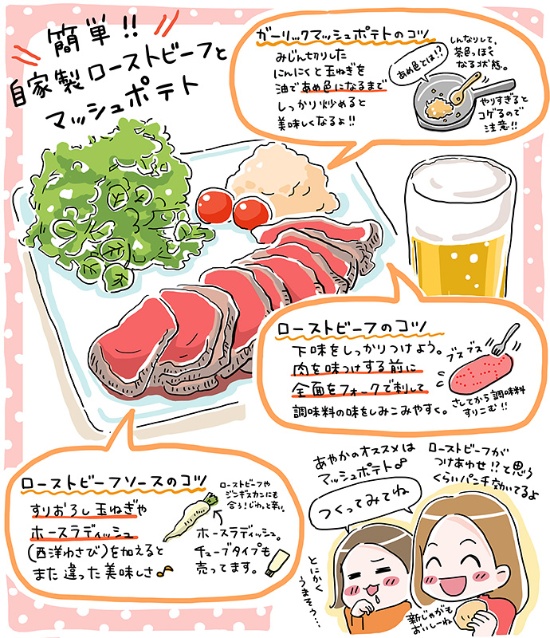 簡単!!
自家製ローストビーフと
マッシュポテト
ガーリックマッシュポテトのコツ
みじん切りした
にんにくと玉ねぎを
油であめ色になるまで
しっかり炒めると
美味しくなるよ!!
あめ色とは!?
しんなりして、
茶色っぽく
なる状態。
やりすぎると
コゲるので
注意!!
ローストビーフのコツ
下味をしっかりつけよう。
肉を味つけする前に
全面をフォークで刺して
調味料の味をしみこみやすく。
ブスブス
さしてから調味料
すりこむ!!
ローストビーフソースのコツ
すりおろし玉ねぎや
ホースラディッシュ
(西洋わさび)を加えると
また違った美味しさ♪
ローストビーフや
ジンギスカンにも
合う!
ホースラディッシュ。
チューブタイプも
売ってます。
あやかのオススメは
マッシュポテト
つくってみてね
ローストビーフが
つけあわせ!?と思う
くらいパンチ効いてるよ
とにかく
うまそう…
新じゃがも
おいしーね